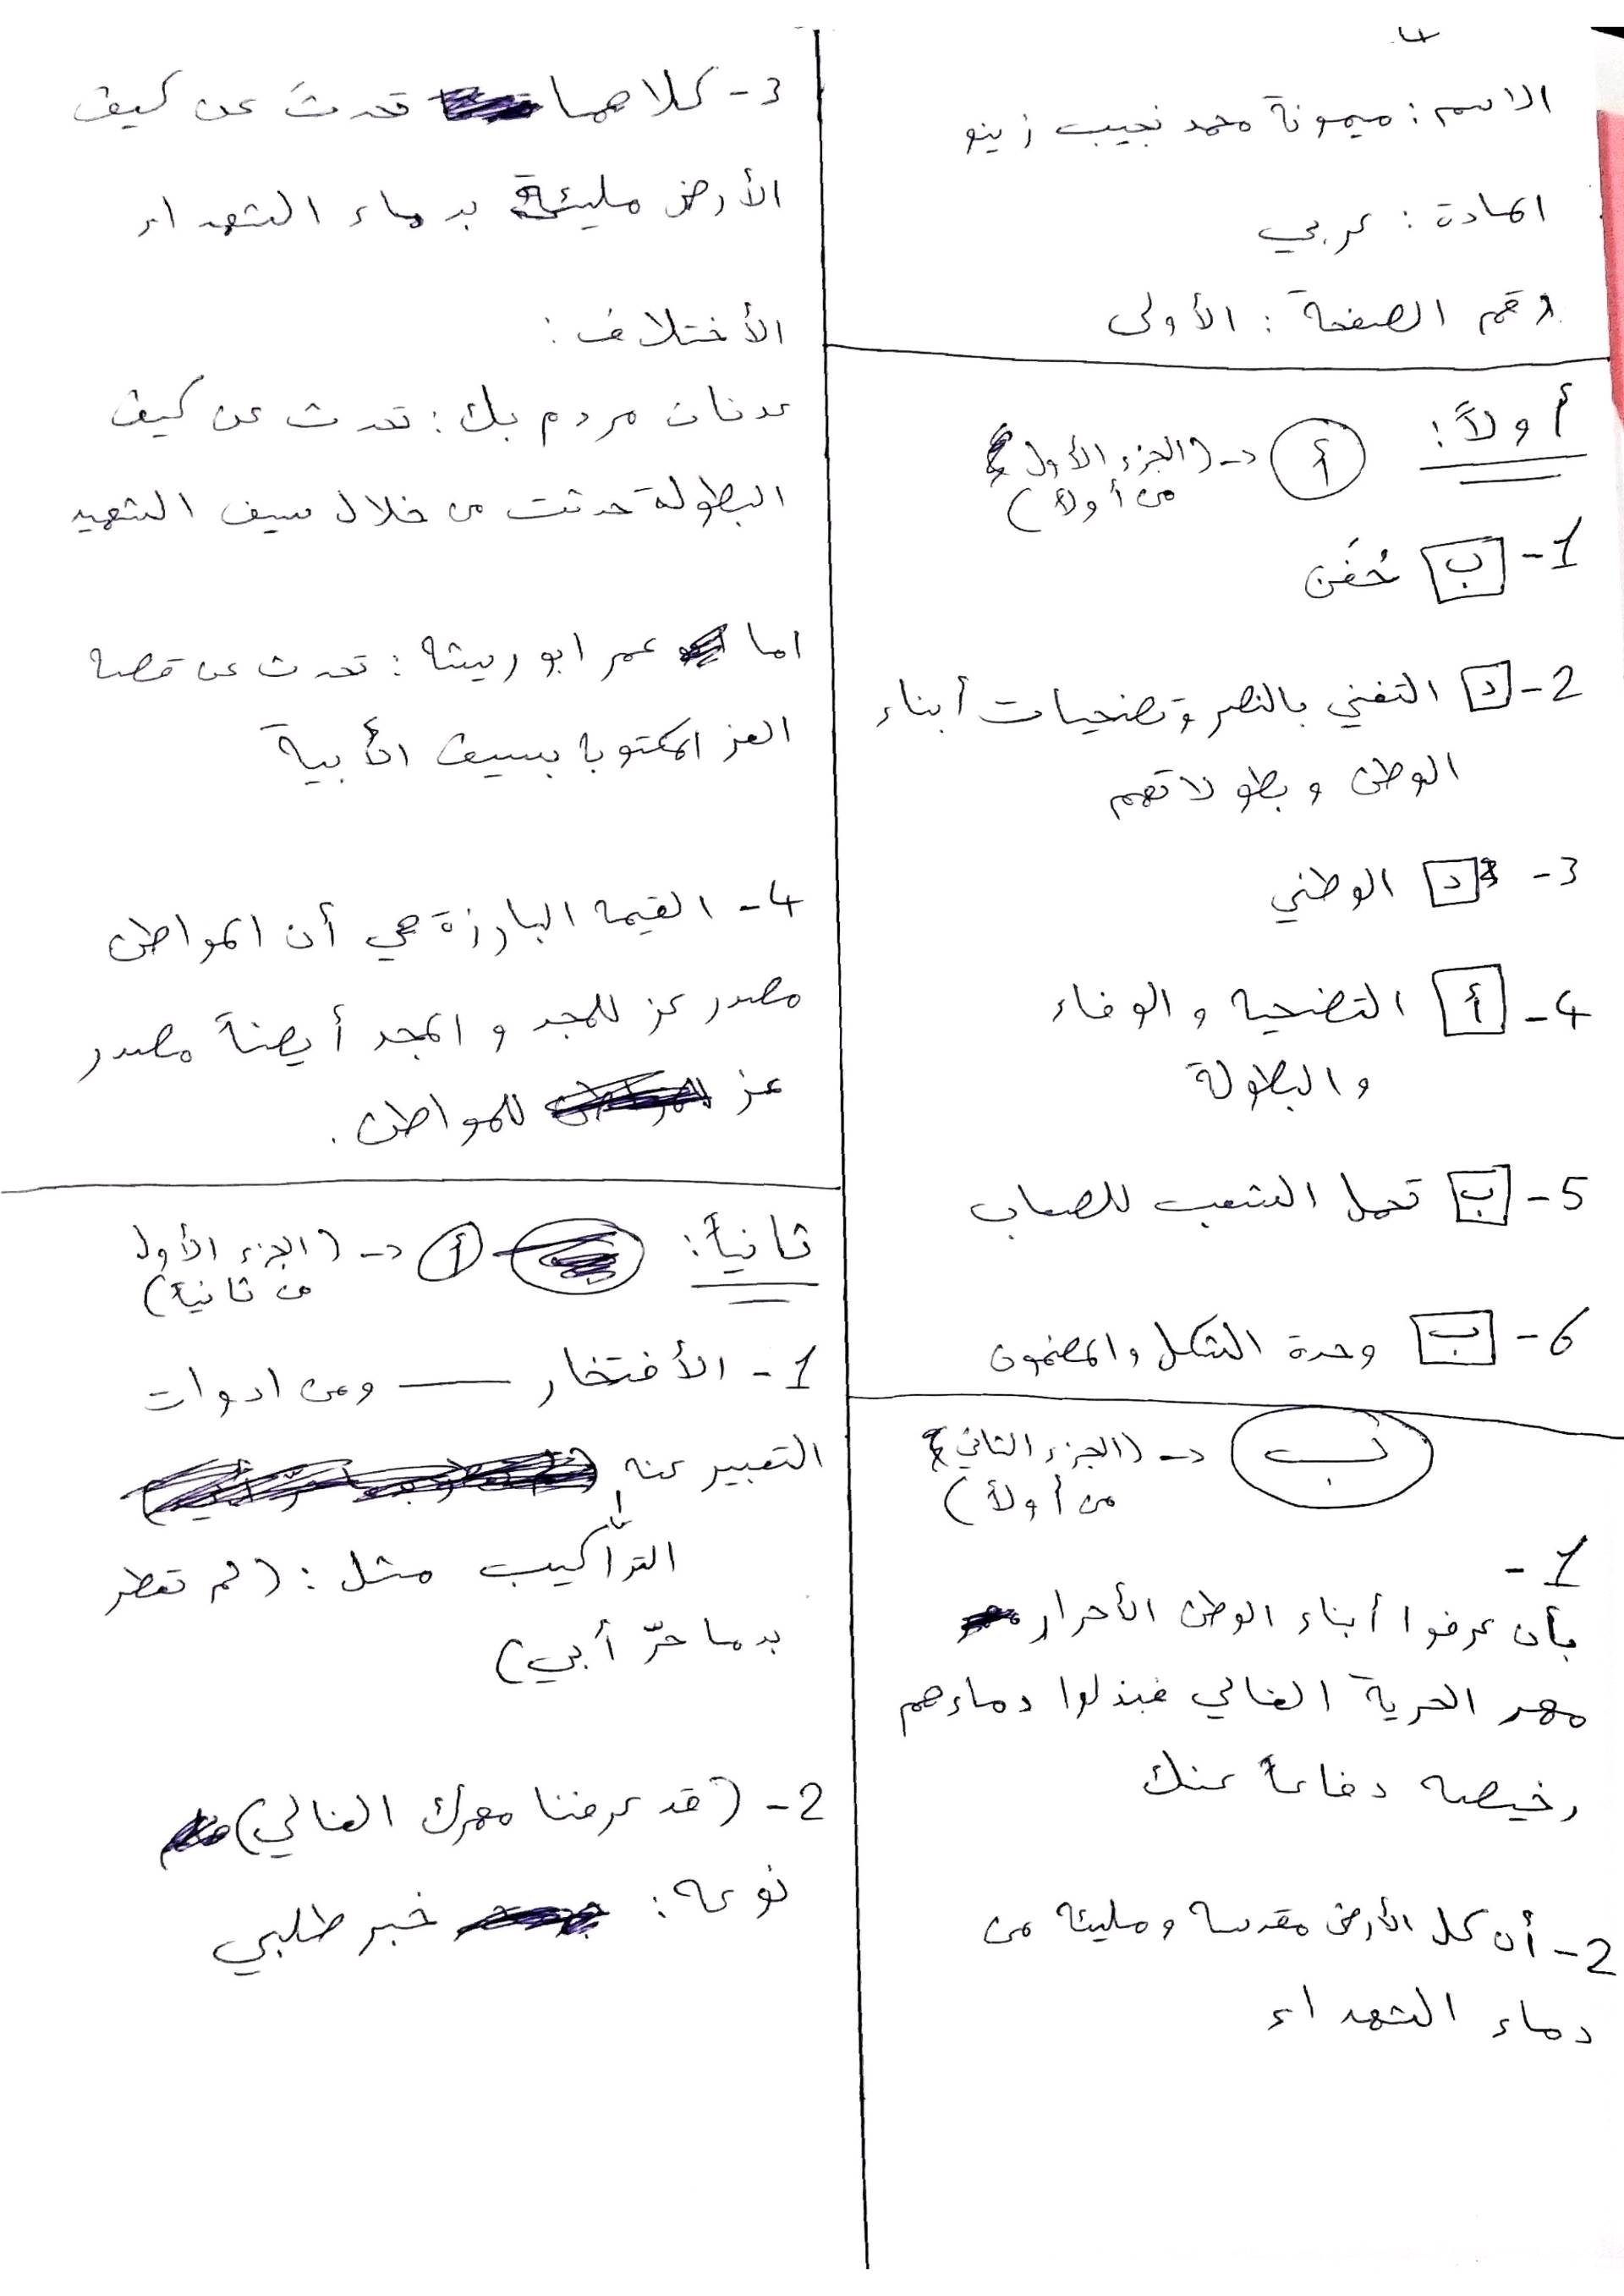 الاسم : ميمونة محمد نجيب زينو
المادة : عربي
رقم الصفحة : الأولى
أولاً :
أ -> (الجزء الأول
من أولاً)
1- ب حُفَن
2- د التغني بالنصر وتضحيات أبناء
الوطن وبطولاتهم
3- د الوطني
4- أ التضحيه والوفاء
والبطولة
5- ب تحمل الشعب للصعاب
6- ب وحدة الشكل والمضمون
ب -> (الجزء الثاني
من أولاً)
1-
بأن عرفوا أبناء الوطن الأحرار
مهر الحرية الغالي فبذلوا دماءهم
رخيصه دفاعاً عنك
2- أن كل الأرض مقدسه ومليئه من
دماء الشهداء
3- كلاهما تحدثَ عن كيف
الأرض مليئة بدماء الشهداء
الأختلاف :
عدنان مردم بك : تحدث عن كيف
البطولة حدثت من خلال سيف الشهيد
اما عمر ابو ريشه : تحدث عن قصه
العز المكتوبا بسيف الأبية
4- القيمه البارزة هي أن المواطن
مصدر عز للمجد و المجد أيضاً مصدر
عز للمواطن .
ثانياً :
أ -> (الجزء الأول
من ثانياً)
1- الأفتخار — ومن ادوات
التعبير عنه
التراكيب مثل : (لم تعطر
بدما حرّ أبي)
2- (قد عرفنا مهرك الغالي)
نوعه : خبر طلبي